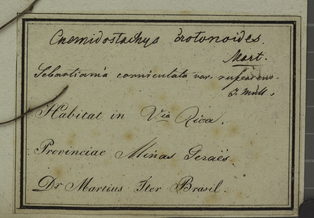 Cnemidostachys crotonoides
Mart.
Sebastiania corniculata var.
Habitat in Via Rica.
Provinciae Minas Geraës.
Dr Martius Iter Brasil.